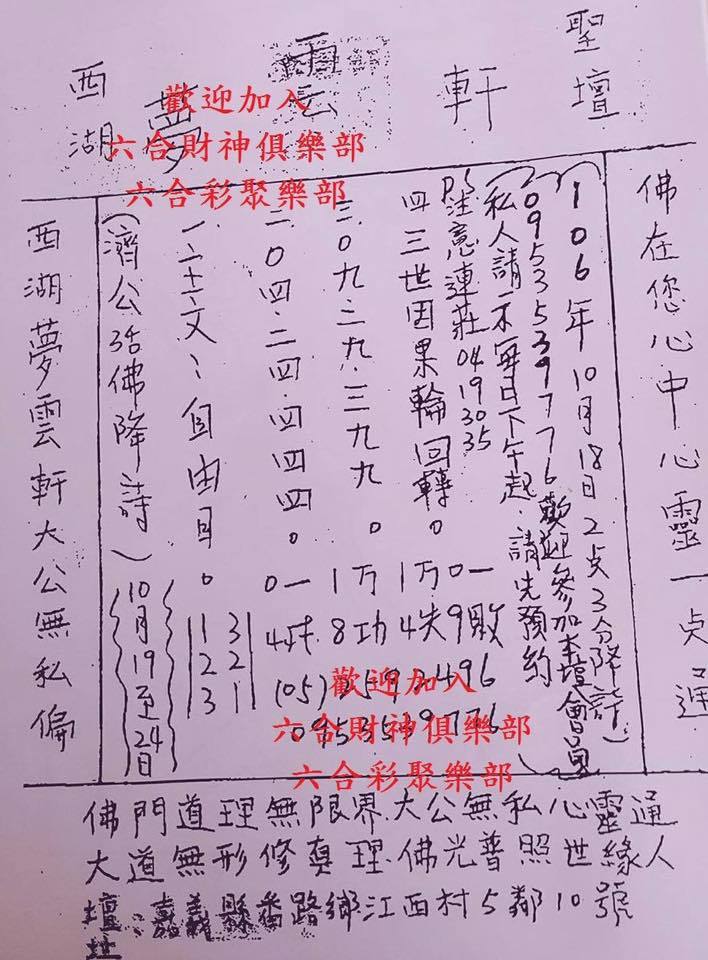 聖壇
軒
雲
夢
西湖
歡迎加入
六合財神俱樂部
六合彩聚樂部
佛在您心中心靈一点通
(106年10月18日2点3分降詩)
0953539776歡迎參加本壇會員
(私人請示每日下午起.請先預約)
P.S注意連莊04193035
四三世因果輪回轉。
三.0九.二九.三九九。
二.0四.二四.四四四。
一二十六文、自由日。
(濟公活佛降詩)
0一1万1万0一
4坪8功4失9敗
(05)2593496
0953539776
123
321
10月19至24日
西湖夢雲軒大公無私偏
歡迎加入
六合財神俱樂部
六合彩聚樂部
佛門道理無限界.大公無私心靈通
大道無形修真理.佛光普照世緣人
壇址:嘉義縣番路鄉江西村5鄰10號